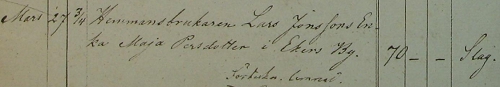 Mars 27 3/4 Hemmansbrukaren Lars Jonssons En-
ka Maja Persdotter i Ekers By. 70 - - Slag.